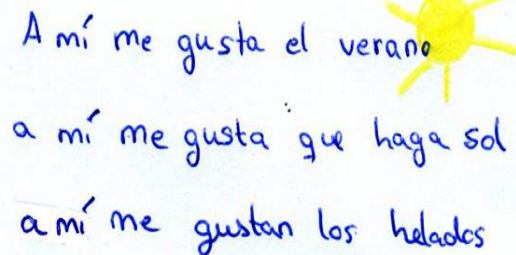 A mí me gusta el verano
a mí me gusta que haga sol
a mí me gustan los helados